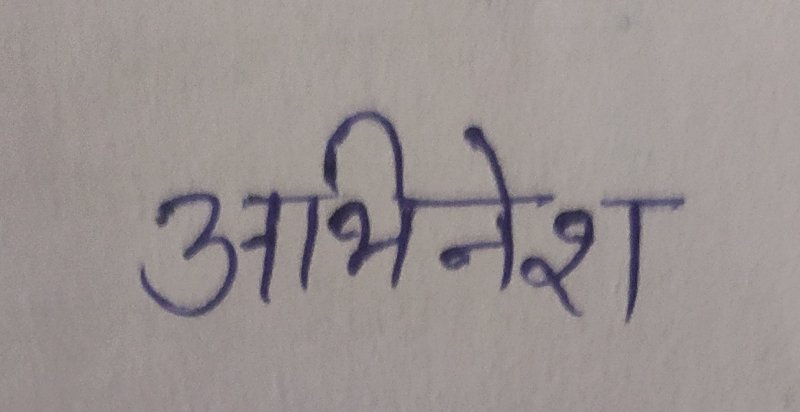 अभिनेश